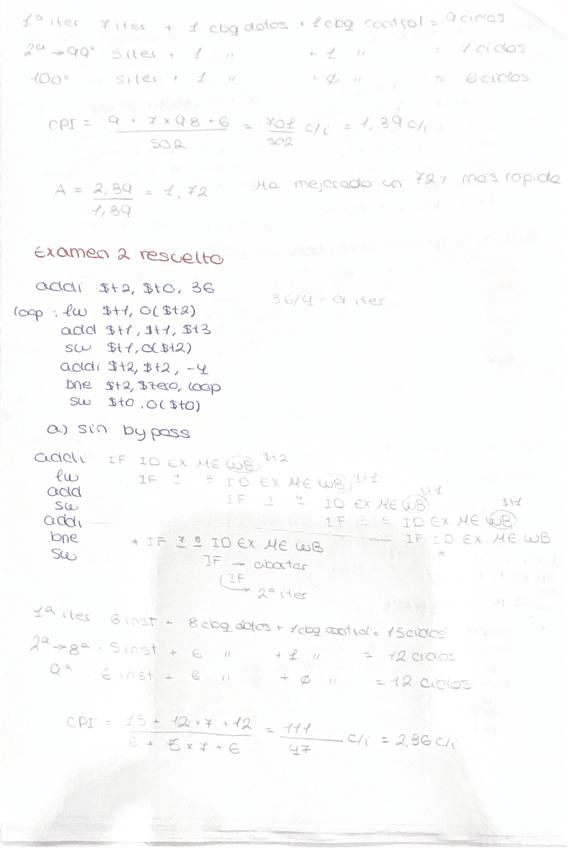 1ª iter 7 iter + 1 cbq datos + 1 cbq control = 9 ciclos
2ª → 99ª 5 iter + 1 " + 1 " = 7 ciclos
100ª 5 iter + 1 " + ø " = 6 ciclos
CPI = 9 + 7 x 98 + 6 / 502 = 701 / 502 c/i = 1,39 c/i
A = 2,39 / 1,39 = 1,72 Ha mejorado un 72% más rápido
Examen 2 resuelto
addi $t2, $t0, 36
loop : lw $t1, 0($t2) 36/4 = 9 iter
add $t1, $t1, $t3
sw $t1, 0($t2)
addi $t2, $t2, -4
bne $t2, $zero, loop
sw $t0, 0($t0)
a) sin bypass
addi IF ID EX ME WB $t2
lw IF 1 2 ID EX ME WB $t1
add IF 3 4 ID EX ME WB $t1
sw IF 5 6 ID EX ME WB $t1
addi IF ID EX ME WB
bne * IF 7 8 ID EX ME WB *
sw IF → abortar
IF
2ª iter
1ª iter 6 inst + 8 cbq datos + 1 cbq control = 15 ciclos
2ª → 8ª . 5 inst + 6 " + 1 " = 12 ciclos
9ª . 6 inst + 6 " + ø " = 12 ciclos
CPI = 15 + 12 x 7 + 12 / 6 + 5 x 7 + 6 = 111 / 47 c/i = 2,36 c/i